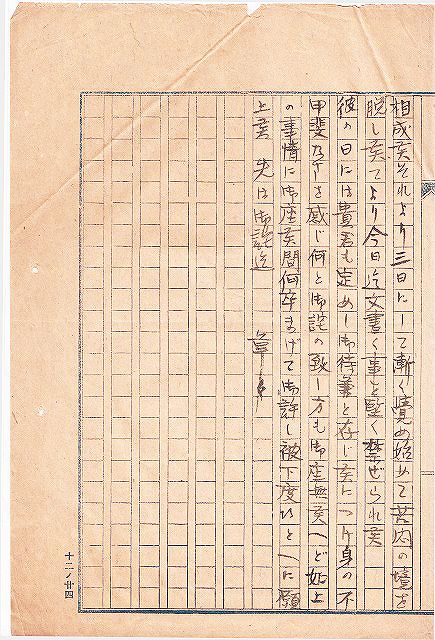 相成候それより三日にして漸く覚め始めて苦内の境を
脱し候てより今日迄文書く事を堅く禁ぜられ候
彼の日には貴君も定めし御待兼と存じ候につけ身の不
甲斐なさを感じ何と御詫の致し方も御座無候へど如上
の事情に御座候間何卒まげて御許し被下度ひとへに願
上候 先は御詫迄 草々
十二ノ廿四